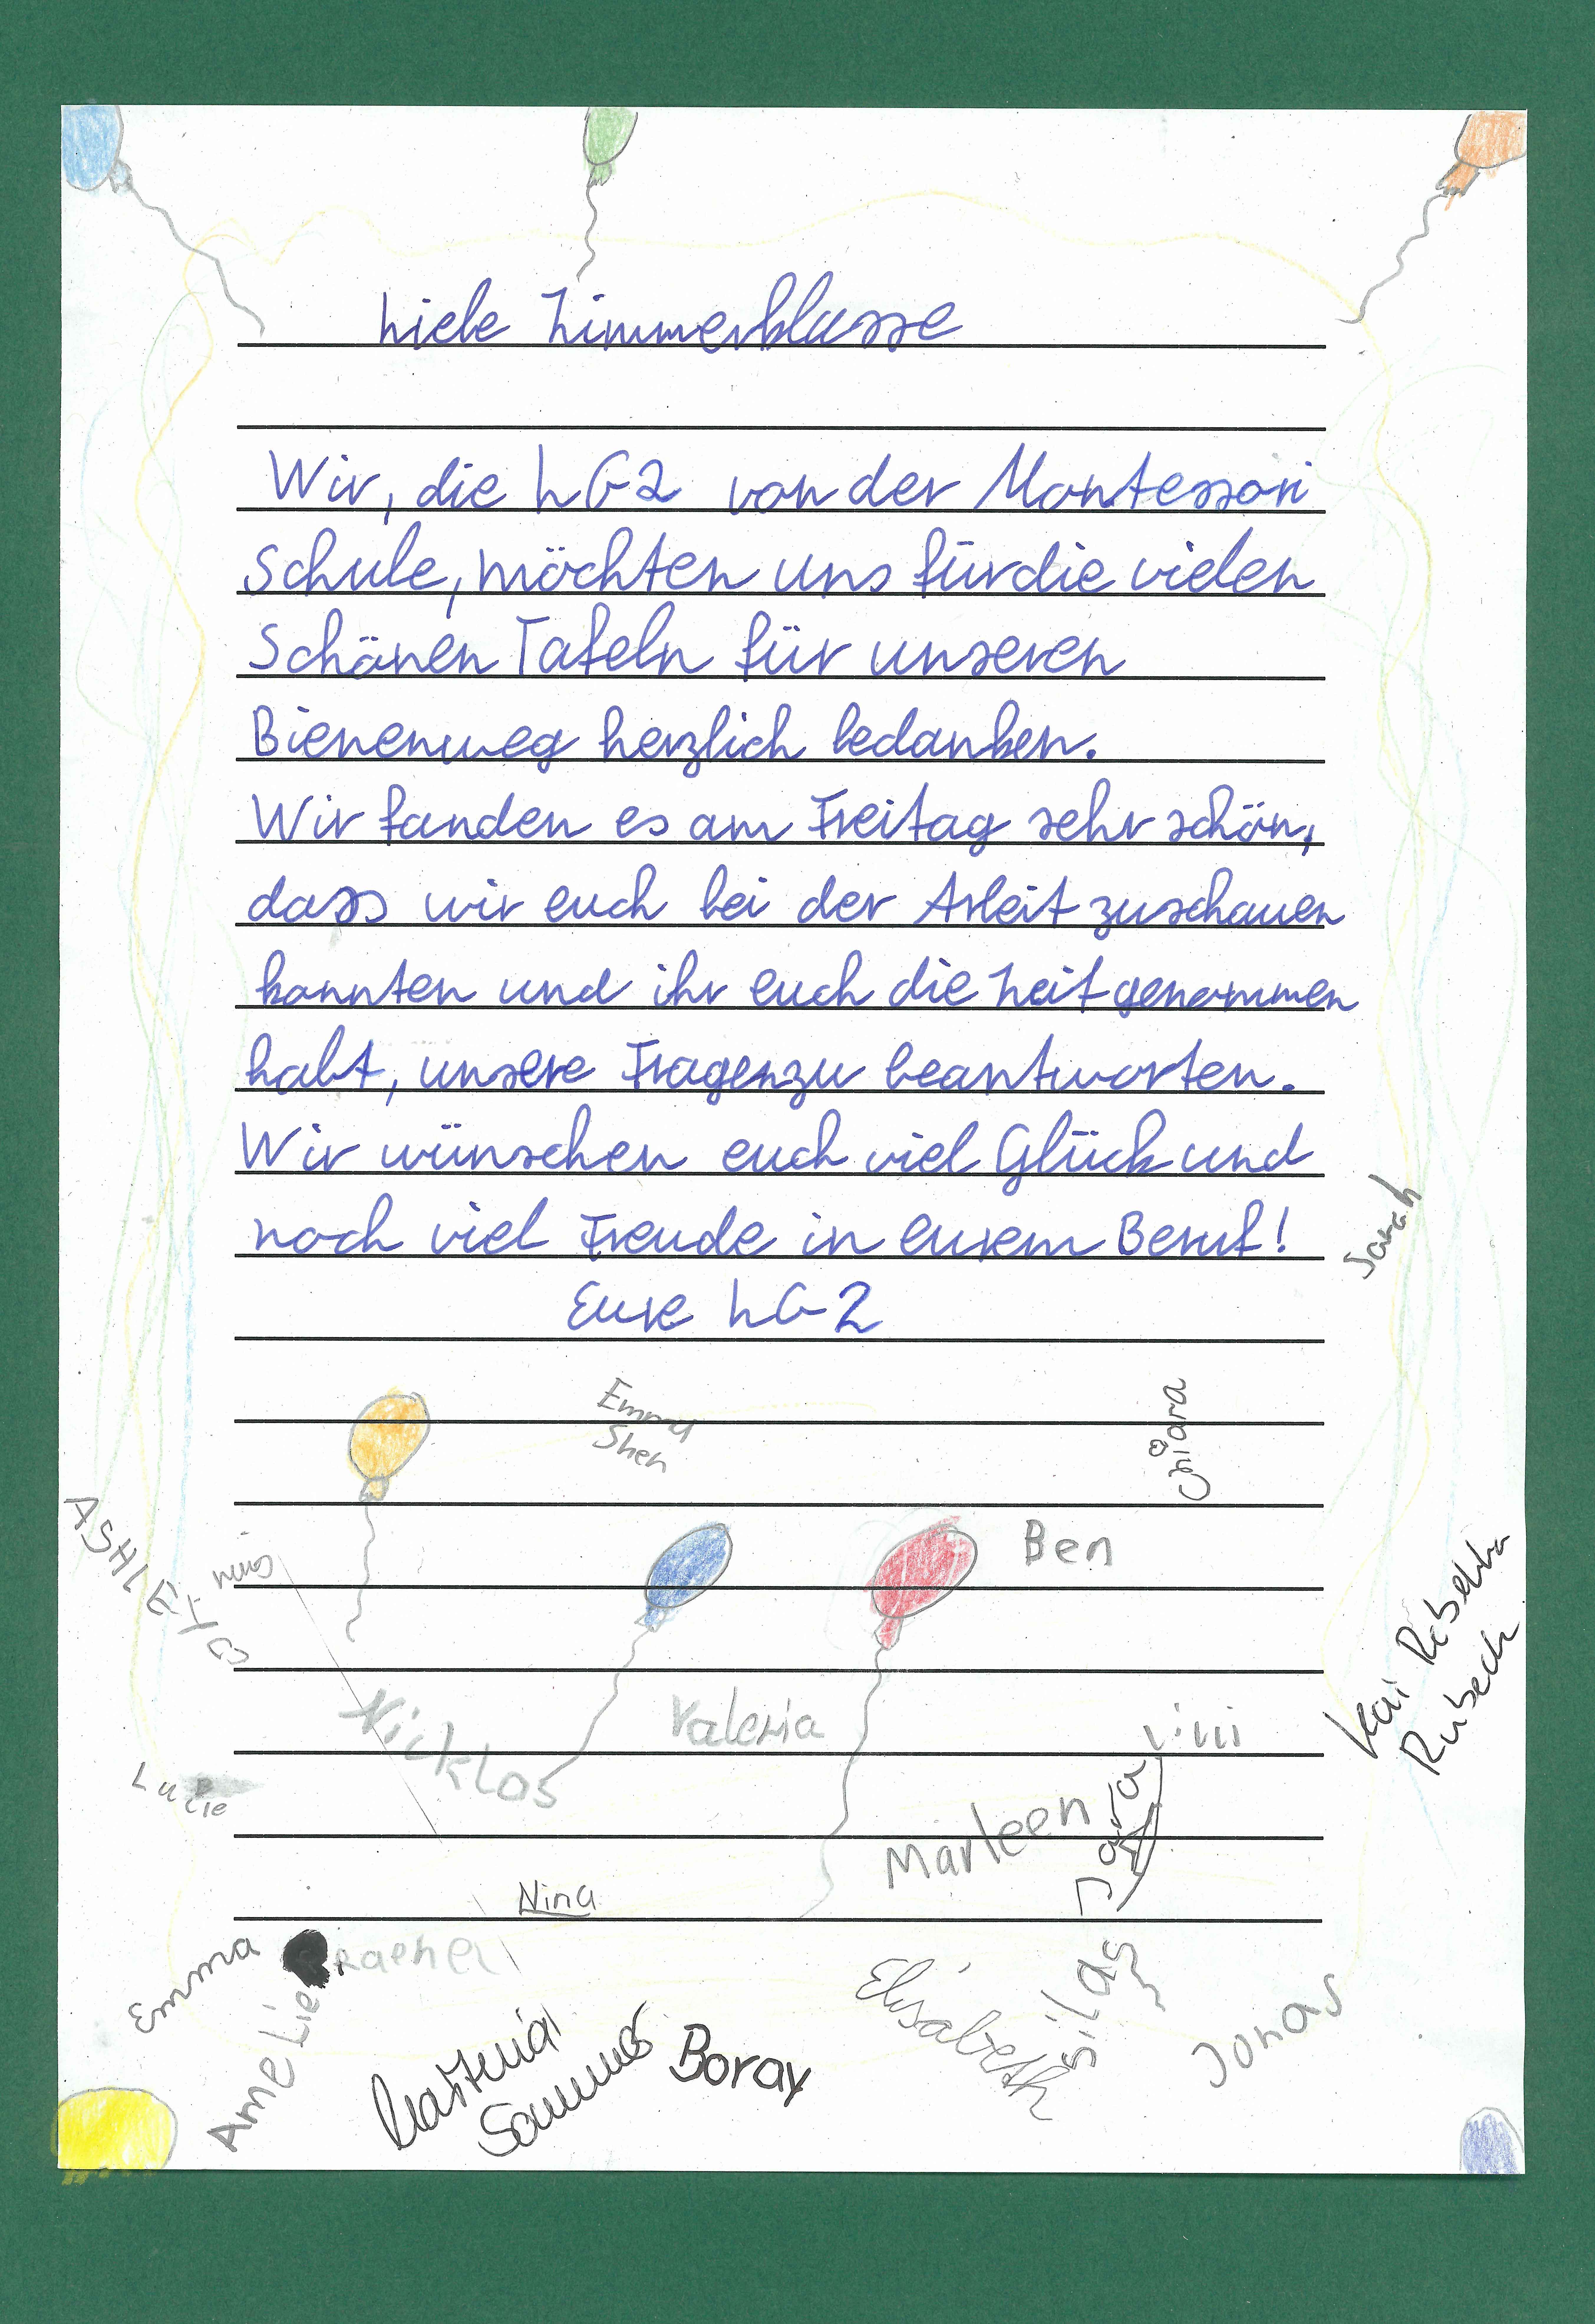 Liebe Zimmerklasse
Wir, die LG2 von der Montessori
Schule, möchten uns für die vielen
Schönen Tafeln für unseren
Bienenweg herzlich bedanken.
Wir fanden es am Freitag sehr schön,
dass wir euch bei der Arbeit zuschauen
konnten und ihr euch die Zeit genommen
habt, unsere Fragen zu beantworten.
Wir wünschen euch viel Glück und
noch viel Freude in eurem Beruf!
Eure LG2
Sarah
Emma
Shen
Chiara
ASHLEY
Ben
Kai Rebekka
Rubeck
Nicklos
Valeria
Lilli
Lucie
Marleen
Jara
Nina
Emma
Amelie
Rachel
Sommer
Boray
Elisabeth
Silas
Jonas